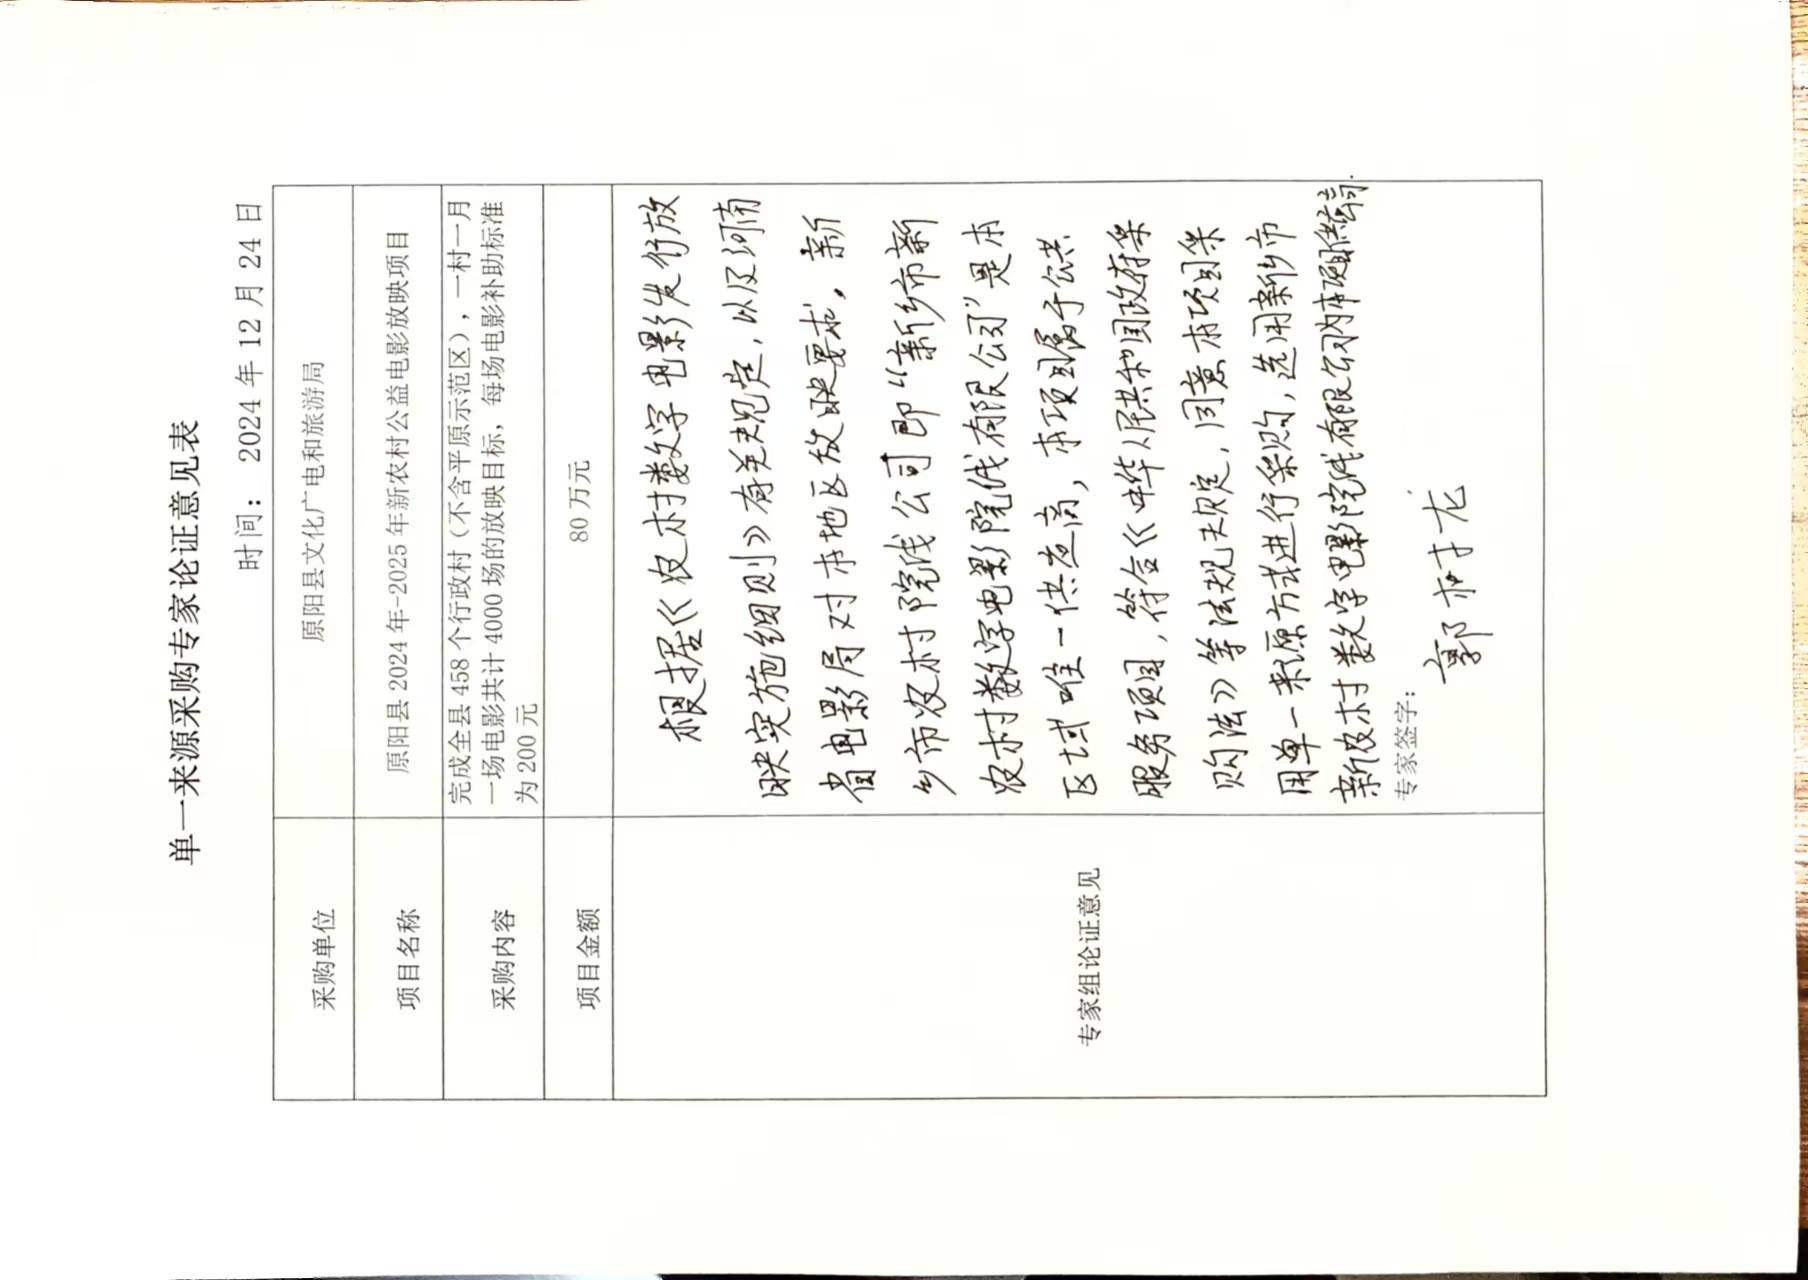 单一来源采购专家论证意见表
时间：2024年12月24日
采购单位
原阳县文化广电和旅游局
项目名称
原阳县2024年-2025年新农村公益电影放映项目
采购内容
完成全县458个行政村（不含平原示范区），一村一月
一场电影共计4000场的放映目标，每场电影补助标准
为200元
项目金额
80万元
专家组论证意见
根据《农村数字电影发行放
映实施细则》有关规定，以及河南
省电影局对本地区放映要求，新
乡市农村院线公司即“新乡市新
农村数字电影院线有限公司”是本
区域唯一供应商，本项目属于公共
服务项目，符合《中华人民共和国政府采
购法》等法规规定，同意本项目采
用单一来源方式进行采购，选用新乡市
新农村数字电影院线有限公司为本项目供应商.
专家签字：
郭